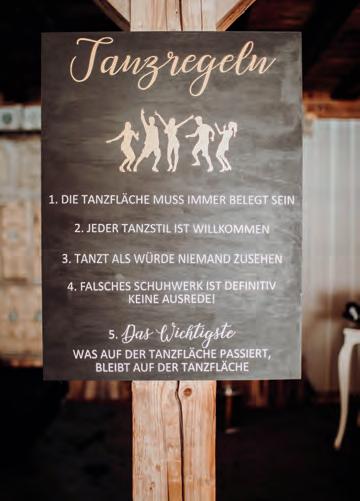 Tanzregeln
1. DIE TANZFLÄCHE MUSS IMMER BELEGT SEIN
2. JEDER TANZSTIL IST WILLKOMMEN
3. TANZT ALS WÜRDE NIEMAND ZUSEHEN
4. FALSCHES SCHUHWERK IST DEFINITIV
KEINE AUSREDE!
5. Das Wichtigste
WAS AUF DER TANZFLÄCHE PASSIERT,
BLEIBT AUF DER TANZFLÄCHE